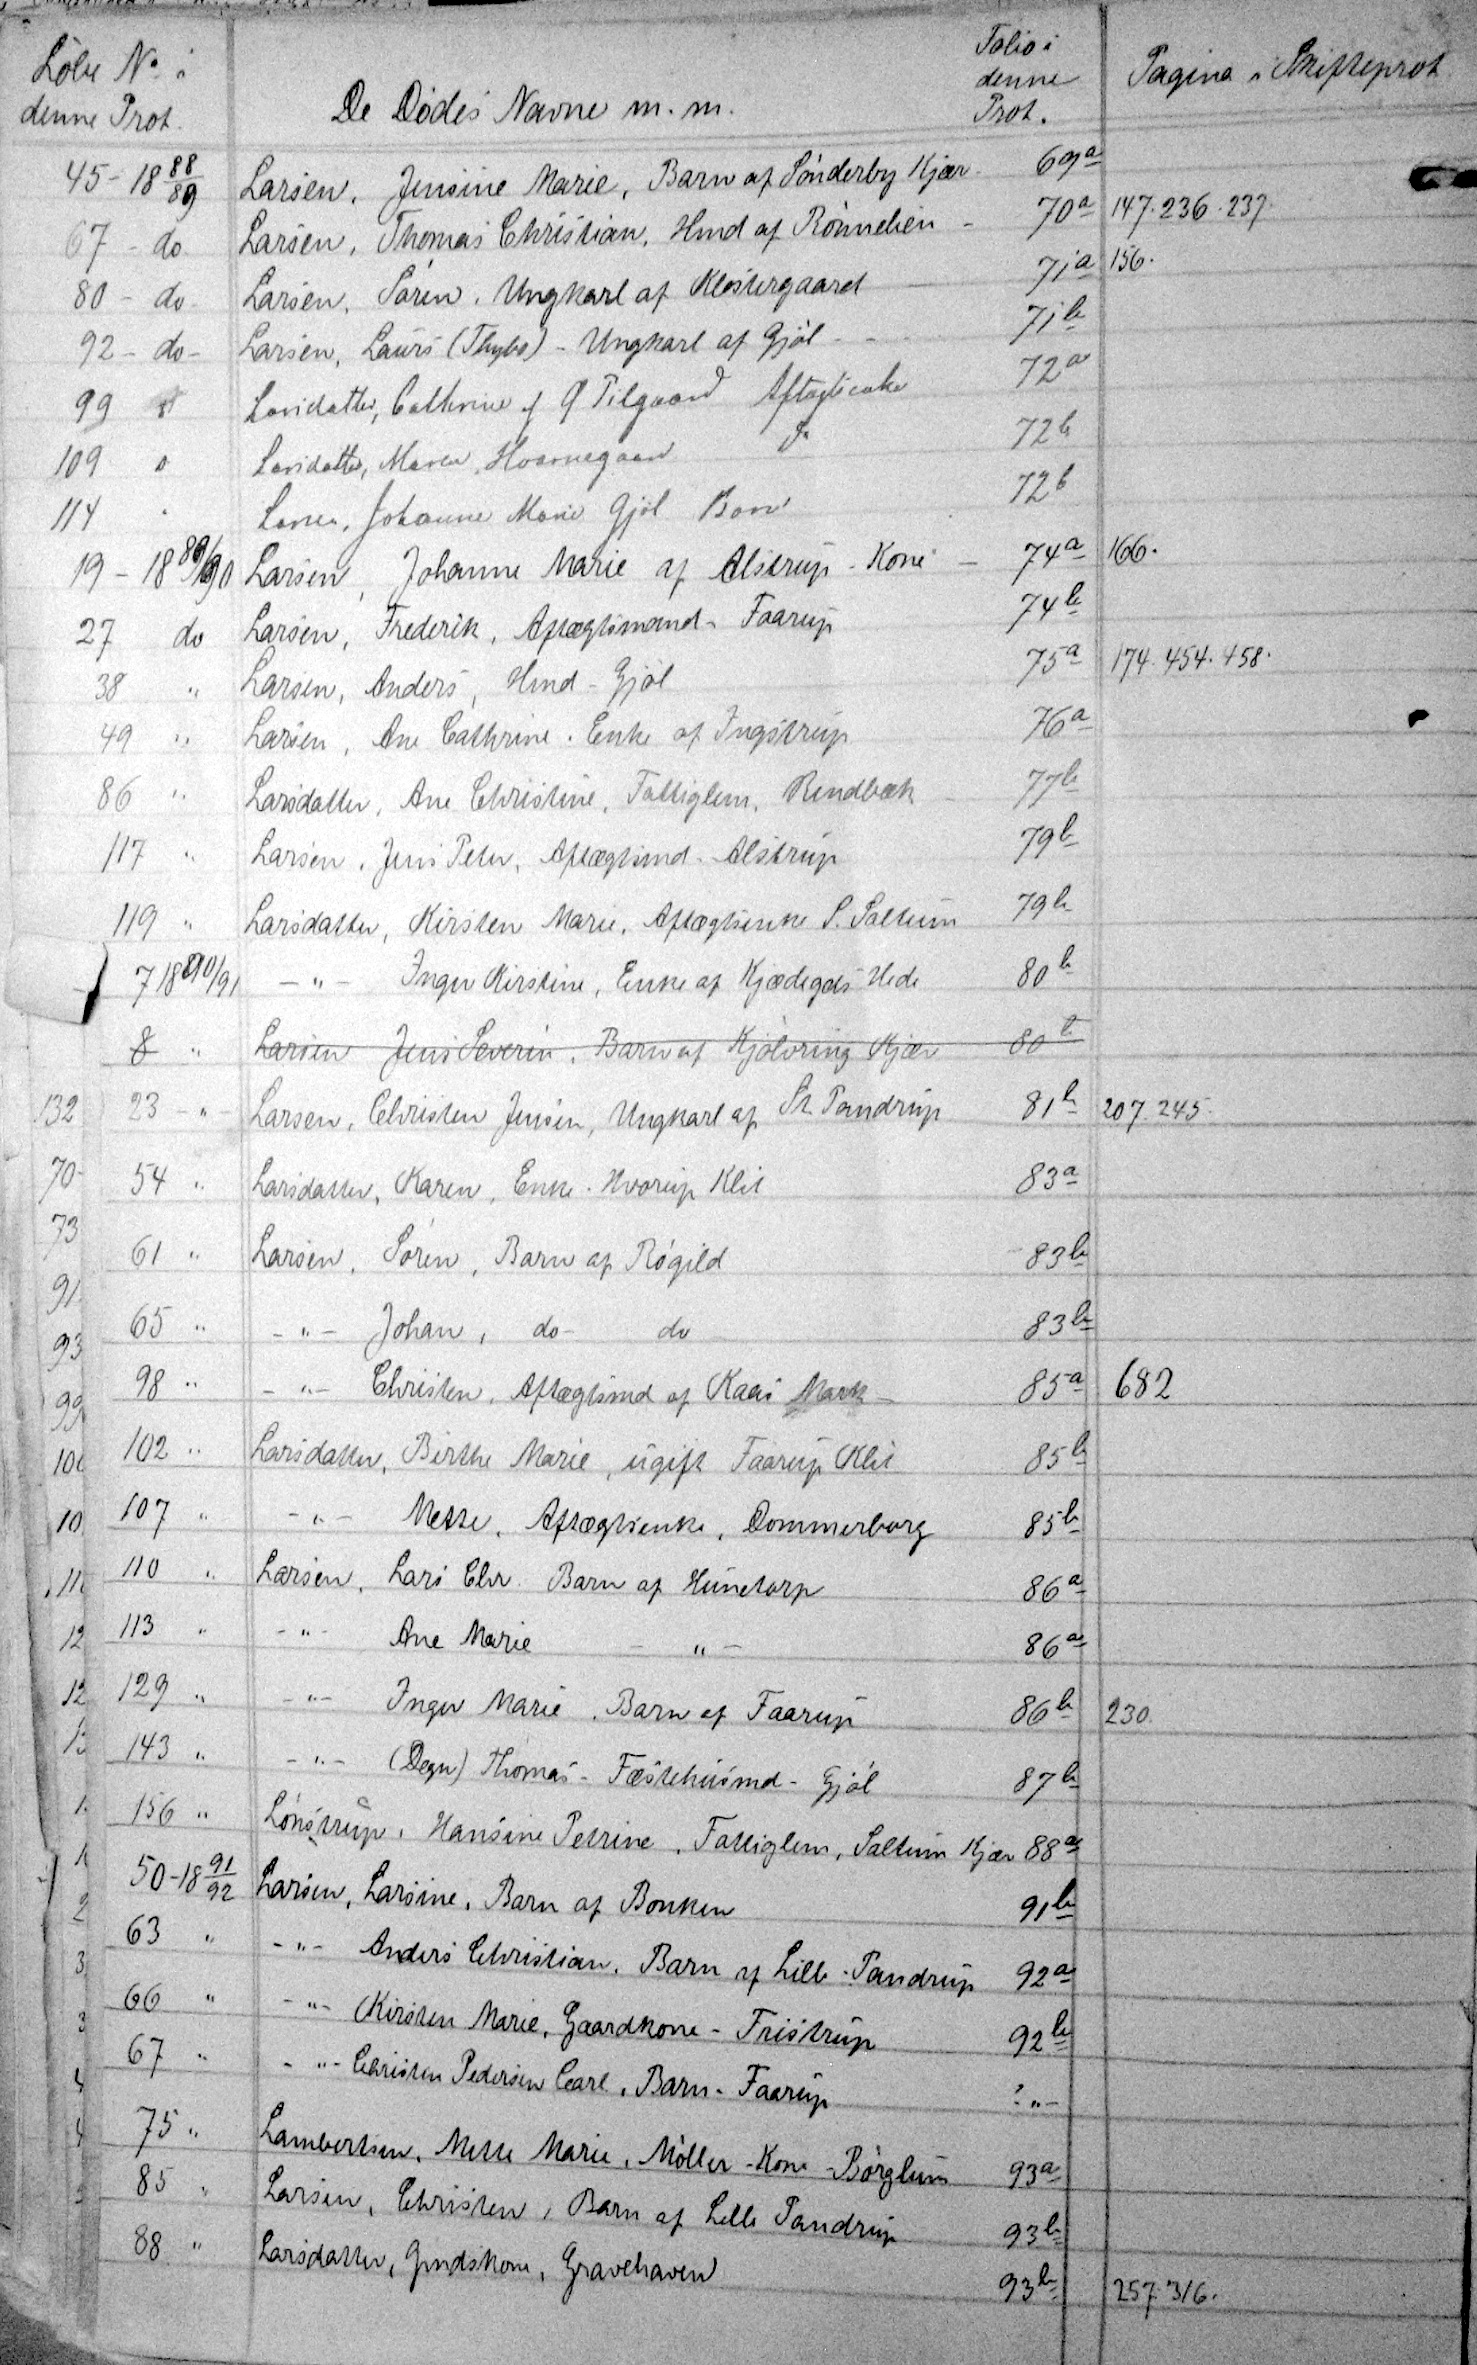 Löbe No. i denne Prot. De Dödes Navne m. m. Folio i denne Prot. Pagina i Skifteprot.
45 - 18 88/89 Larsen, Jensine Marie, Barn af Sönderby Kjær 69a
67 - do Larsen, Thomas Christian, Hmd af Rönnelien - 70a 147. 236. 237.
80 - do Larsen, Sören, Ungkarl af Klostergaard 71a 156.
92 - do - Larsen, Laurs (Thybo) - Ungkarl af Gjöl - - 71b
99 Larsdatter, Cathrine af Pilgaard Aftægtsenke 72a
109 Larsdatter, Maren, 72b
114 Larsen, Johanne Marie Gjöl Barn 72b
19 - 18 89/90 Larsen, Johanne Marie af Alstrup - Kone - 74a 166.
27 do Larsen, Frederik, Aftægtsmand - Faarup 74b
38 " Larsen, Anders, Hmd - Gjöl 75a 174. 454. 458.
49 " Larsen, Ane Cathrine. Enke af Ingstrup 76a
86 " Larsdatter, Ane Christine, Fattiglem, Rendbæk 77b
117 " Larsen, Jens Peter, Aftægtsmd - Alstrup 79b
119 " Larsdatter, Kirsten Marie, Aftægtsenke S. Saltum 79b
7 18 90/91 - " - Inger Kirstine, Enke af Kjædegds Hede 80b
8 " Larsen Jens Severin, Barn af Kjölvring Kjær 80b
132 23 - " - Larsen, Christen Jensen, Ungkarl af St. Pandrup 81b 207. 245.
70 54 " Larsdatter, Karen, Enke. Hvorup Klit 83a
73 61 " Larsen, Sören, Barn af Rögild 83b
91 65 " - " - Johan, do - do 83b
93 98 " - " - Christen, Aftægtsmd af Kaas Mark - 85a 682
99 102 " Larsdatter, Birthe Marie, ugift Faarup Klit 85b
10 107 " - " - Mette, Aftægtsenke, Dommerborg 85b
11 110 " Larsen, Lars Chr. Barn af Hunetorp 86a
12 113 " - " - Ane Marie - " - 86a
12 129 " - " - Inger Marie, Barn af Faarup 86b 230.
143 " - " - (Degn) Thomas - Fæstehusmd - Gjöl 87b
156 " Lönstrup, Hansine Petrine, Fattiglem, Saltum Kjær 88a
50 - 18 91/92 Larsen, Larsine, Barn af Bonken 91b
63 " - " - Anders Christian, Barn af Lille - Pandrup 92a
66 " - " - Kirsten Marie, Gaardkone - Fristrup 92b
67 " - " - Christen Pedersen Carl, Barn - Faarup - " -
75 " Lambertsen, Mette Marie, Möller - Kone - Börglum 93a
85 " Larsen, Christen, Barn af Lille Pandrup 93b
88 " Larsdatter, Gmdskone, Gravehaven 93b 257. 316.